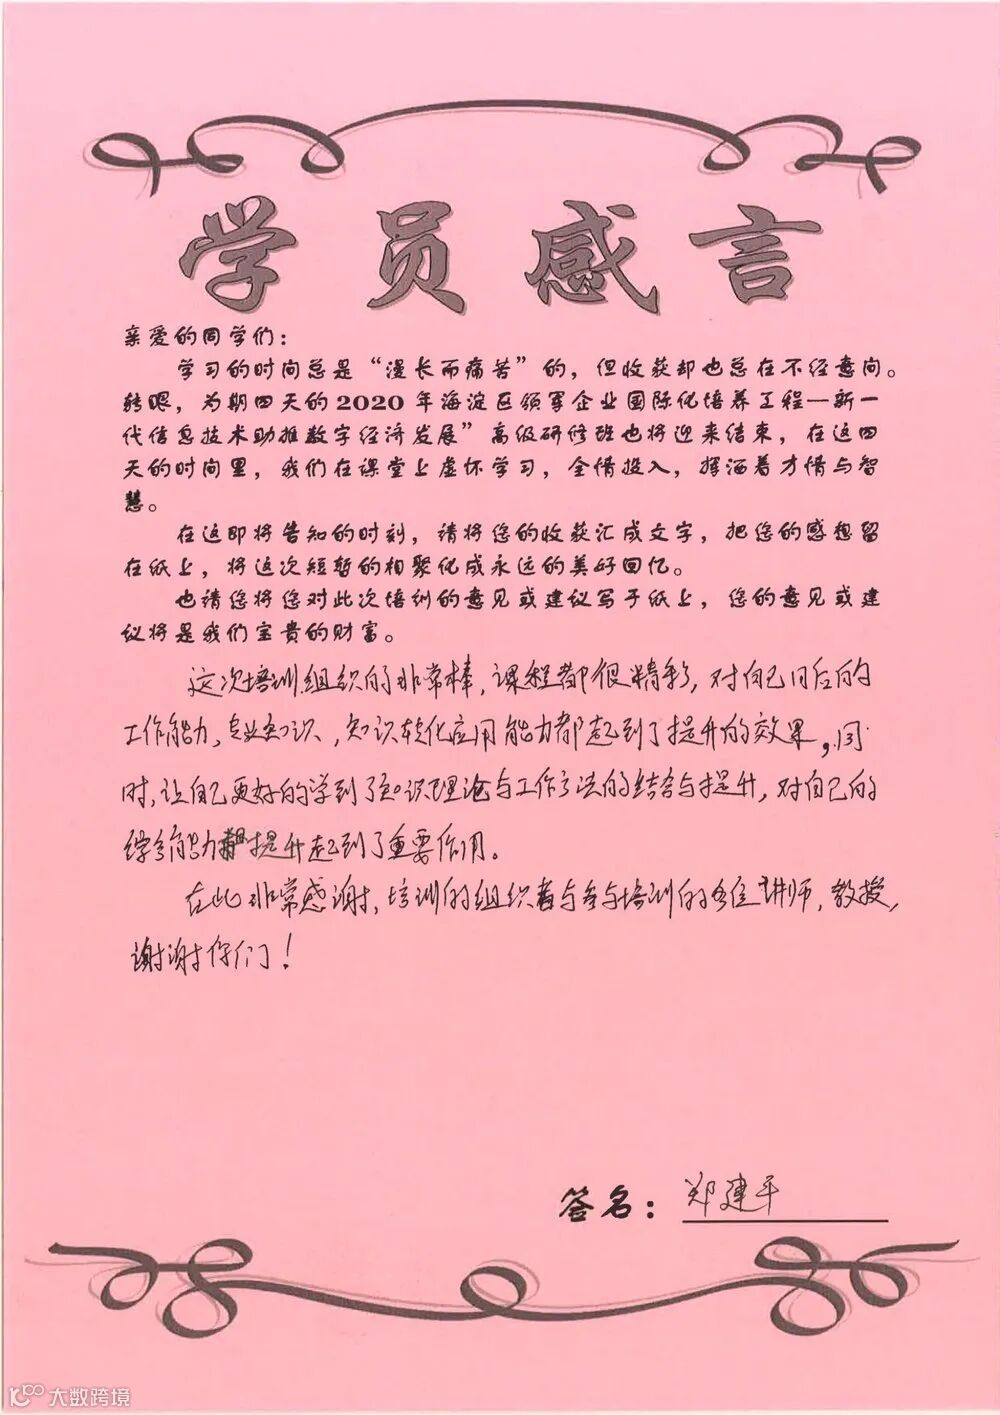 学员感言
亲爱的同学们：
学习的时间总是“漫长而痛苦”的，但收获却也总在不经意间。
转眼，为期四天的2020年海淀区领军企业国际化培养工程—新一
代信息技术助推数字经济发展”高级研修班也将迎来结束，在这四
天的时间里，我们在课堂上虚怀学习，全情投入，挥洒着才情与智
慧。
在这即将告知的时刻，请将您的收获汇成文字，把您的感想留
在纸上，将这次短暂的相聚化成永远的美好回忆。
也请您将您对此次培训的意见或建议写于纸上，您的意见或建
议将是我们宝贵的财富。
这次培训组织的非常棒，课程都很精彩，对自己日后的
工作能力，专业知识，知识转化应用能力都起到了提升的效果，同
时，让自己更好的学到了知识理论与工作方法的结合与提升，对自己的
综合能力提升起到了重要作用。
在此非常感谢，培训的组织者与参与培训的各位讲师，教授，
谢谢你们！
签名：郑建平
大数跨境